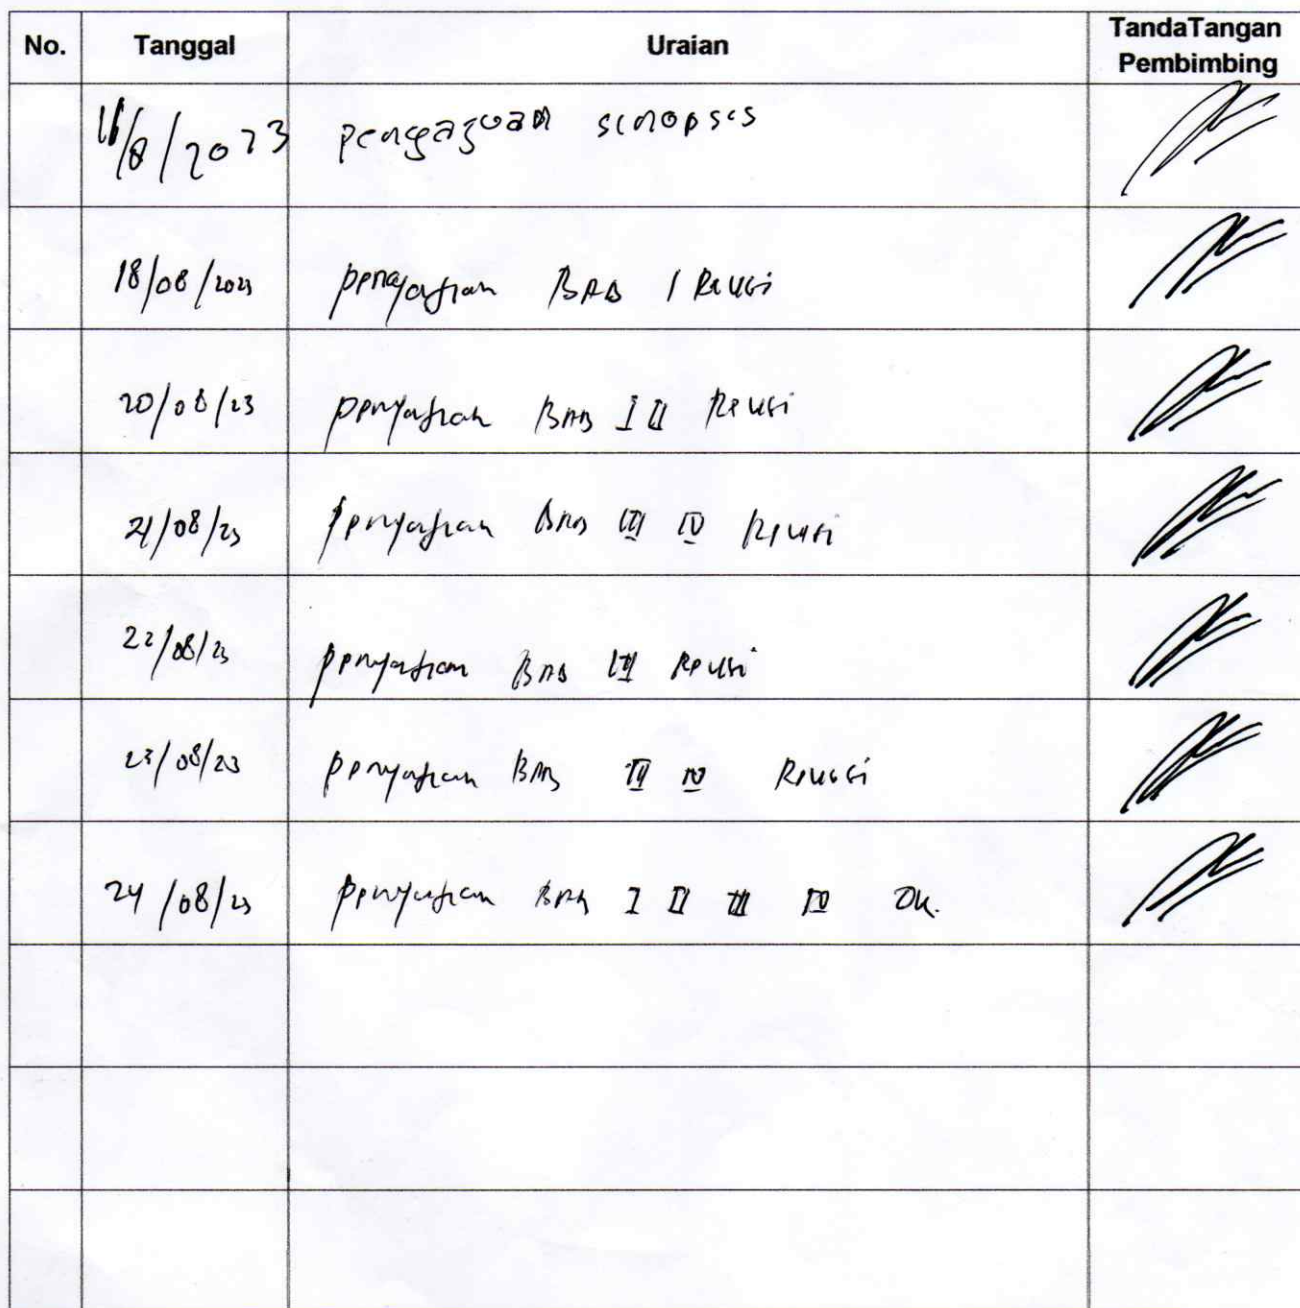 No. Tanggal Uraian TandaTangan Pembimbing
16/8/2023 pengajuan sinopsis
18/08/2023 pengajuan BAB I Revisi
20/08/23 pengajuan BAB I II Revisi
21/08/23 pengajuan BAB III IV Revisi
22/08/23 pengajuan BAB III Revisi
23/08/23 pengajuan BAB IV Revisi
24/08/23 pengajuan BAB I II III IV OK.